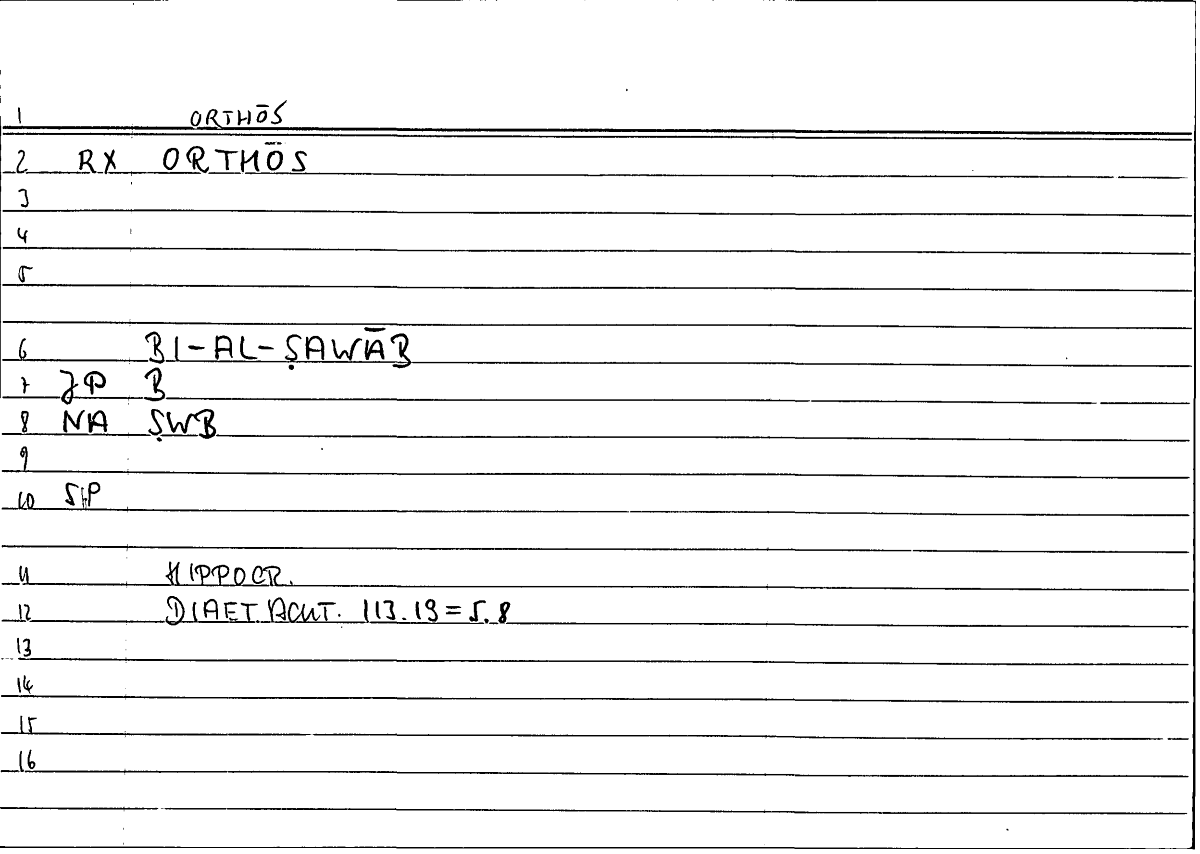 1 ORTHŌS
2 RX ORTHŌS
3
4
5
6 BI-AL-ṢAWĀB
7 JP B
8 NA ṢWB
9
10
11 HIPPOCR.
12 DIAET. ACUT. 113.19 = 5.8
13
14
15
16